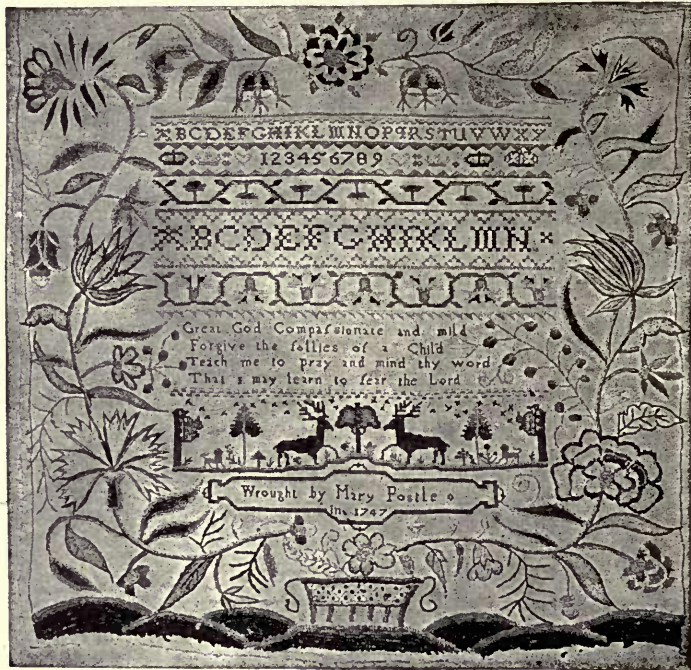 ABCDEFGHIKLMNOPQRSTUVWXY
123456789
ABCDEFGHIKLMN
Great God Compaſsionate and mild
Forgive the follies of a Child
Teach me to pray and mind thy word
That I may learn to fear the Lord
Wrought by Mary Postle
in 1747